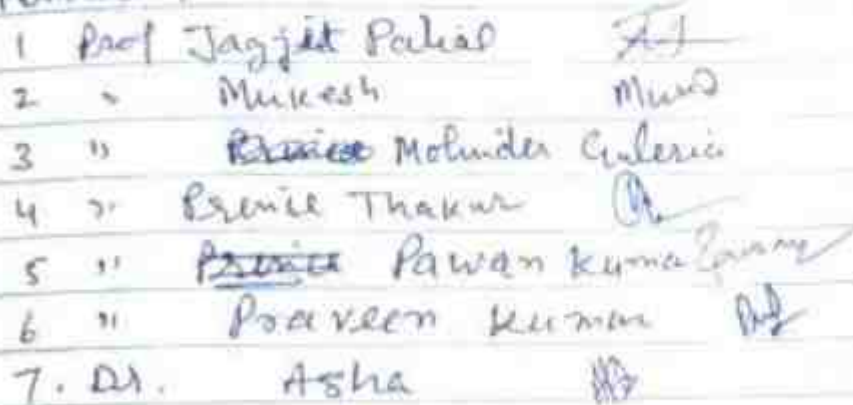 1 Prof Jagjit Pahal
2 " Mukesh Mund
3 " Mohinder Guleria
4 " Prenice Thakur
5 " Pawan Kumar
6 " Praveen Kumar
7. Dr. Asha